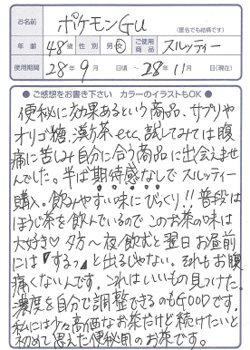 お名前 ポケモンGU (匿名でも結構です)
年齢 48歳 性別 男・女 ご使用商品 スルッティー
使用期間 28年9月 日頃 ~ 28年11月 日(現在)
●ご感想をお書き下さい カラーのイラストもOK●
便秘に効果あるという商品、サプリや
オリゴ糖、漢方茶etc、試してみては腹
痛に苦しみ自分に合う商品に出会えませ
んでした。半ば期待感なしでスルッティー
購入。飲みやすい味にびっくり!!普段は
ほうじ茶を飲んでいるのでこのお茶の味は
大好き♡夕方~夜飲むと翌日お昼前
には『するっ』と出るじゃない。それもお腹
痛くないんです。これはいいもの見つけた。
濃度を自分で調整できるのもGOODです。
私には少々高価なお茶だけど続けたいと
初めて思えた便秘用のお茶です。